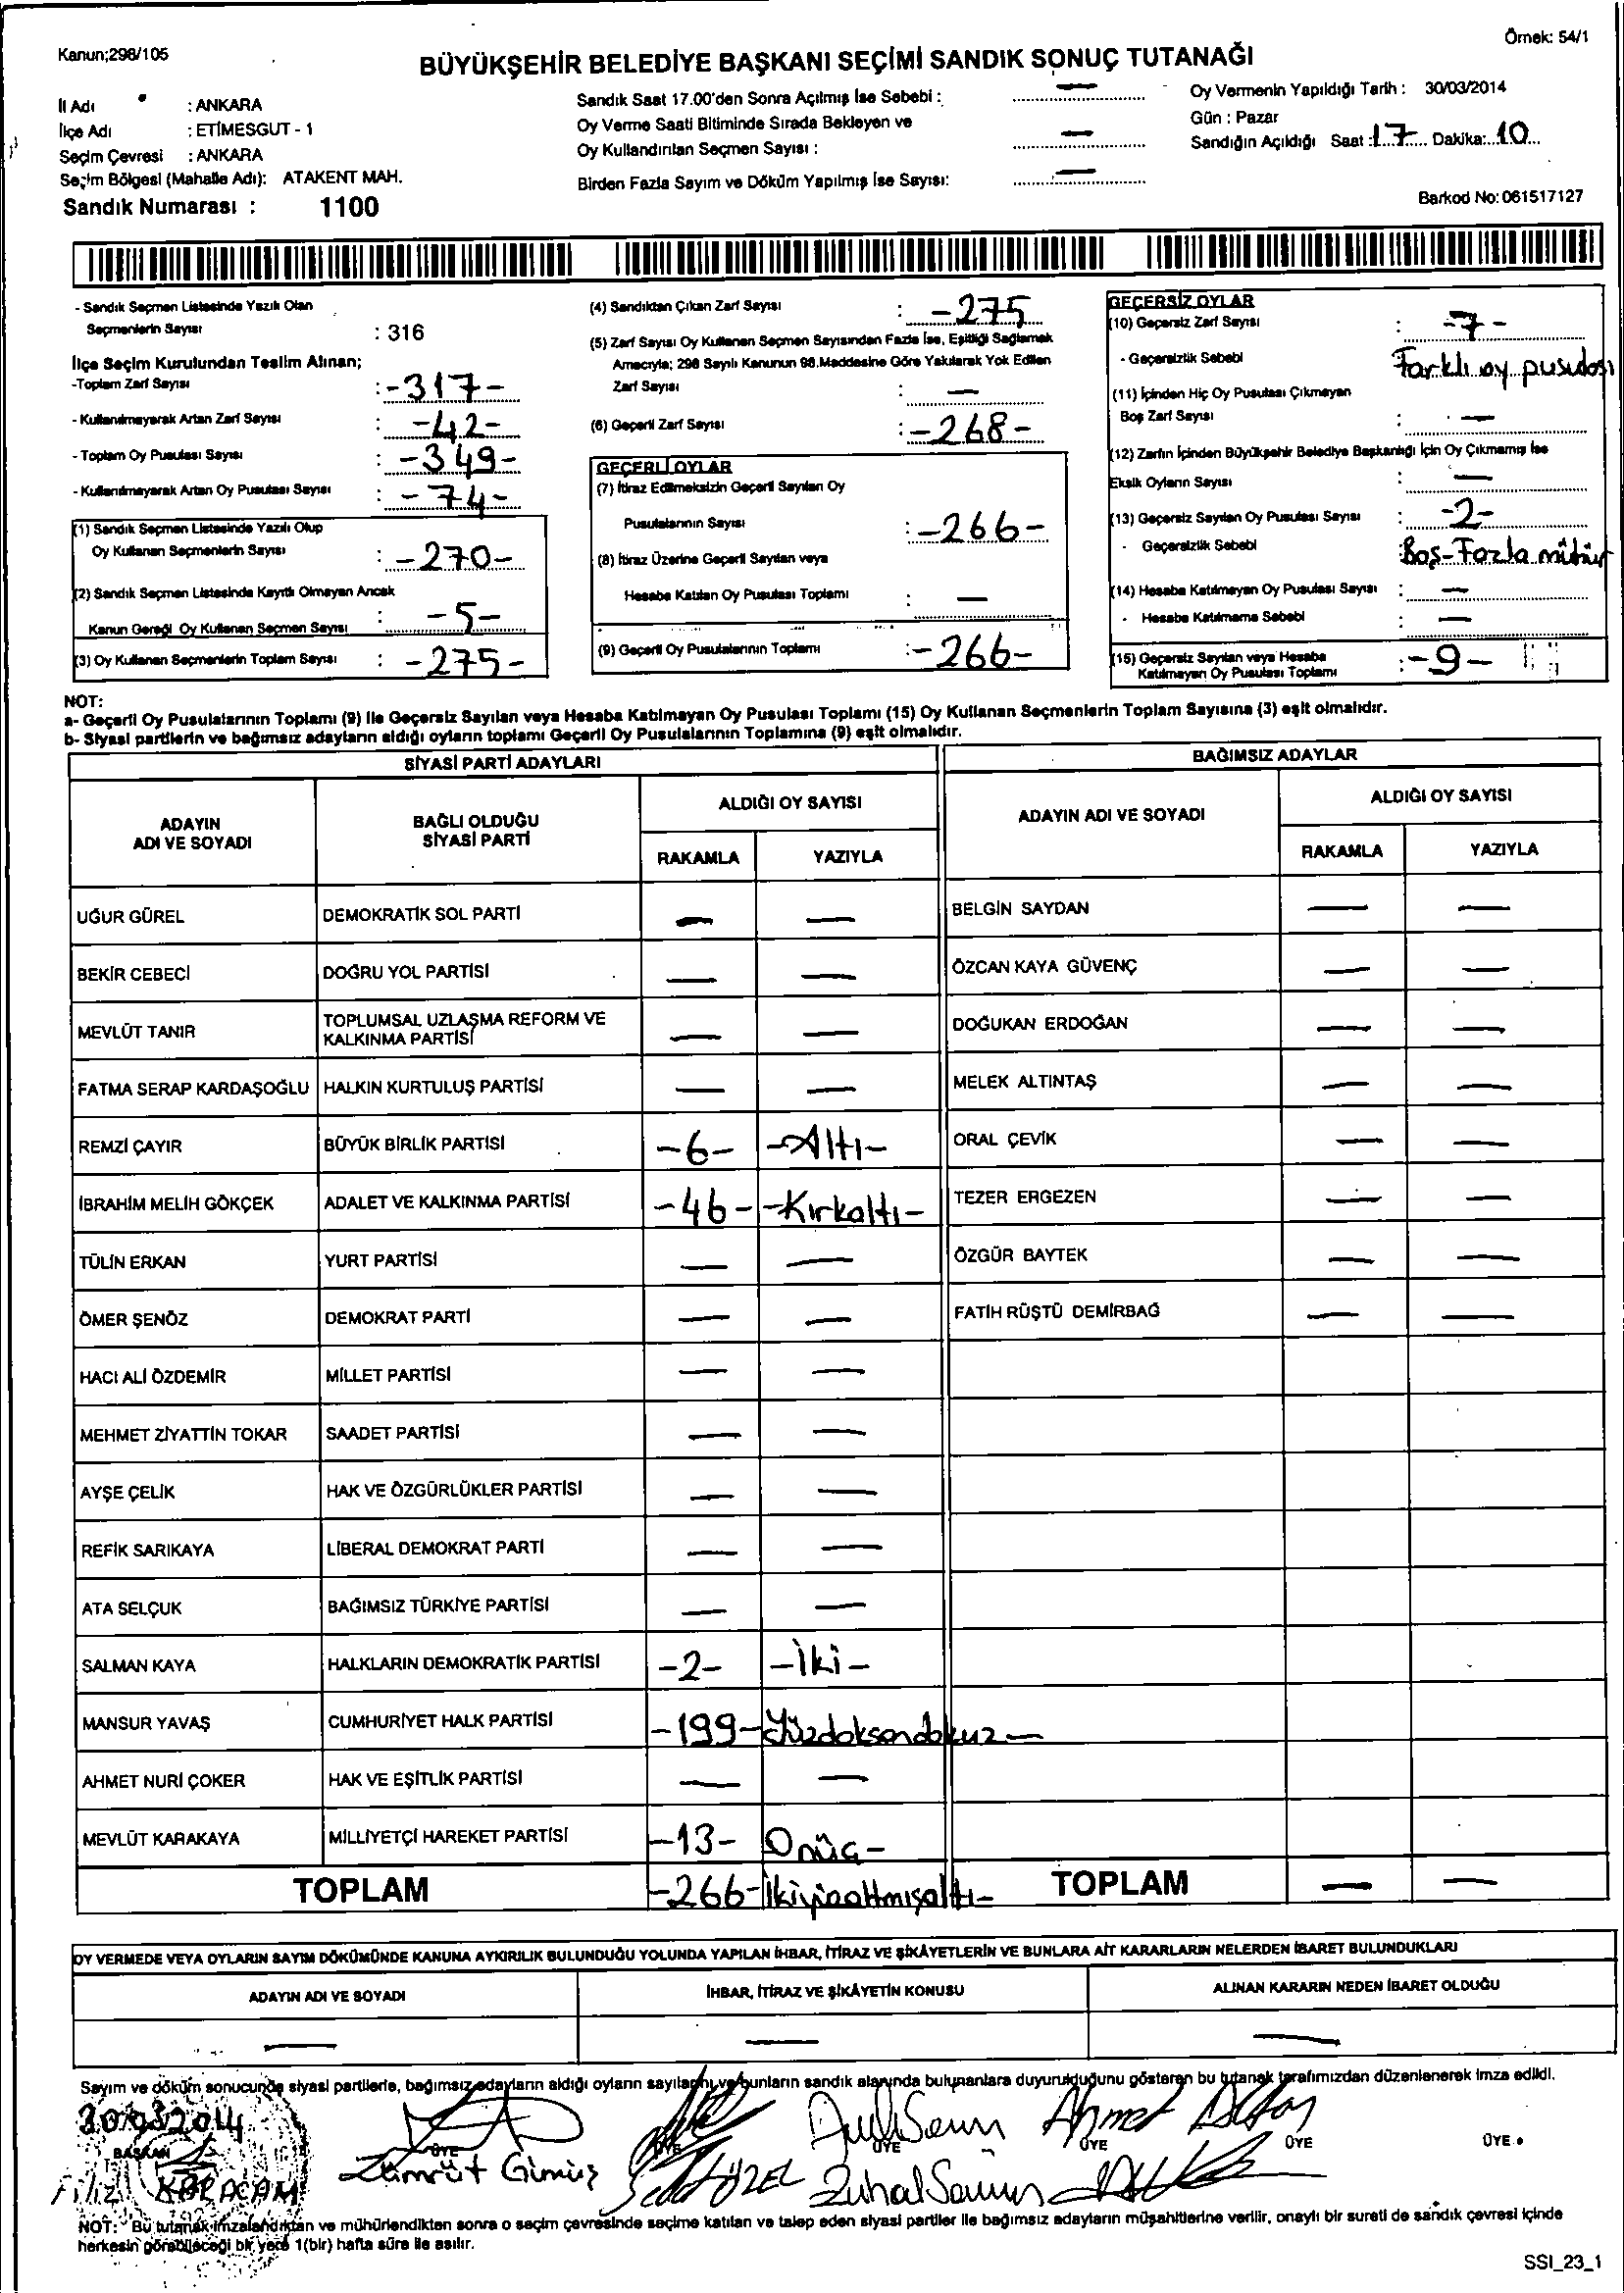 Kanun;298/105
Örnek: 54/1
BÜYÜKŞEHİR BELEDİYE BAŞKANI SEÇİMİ SANDIK SONUÇ TUTANAĞI
İl Adı : ANKARA
İlçe Adı : ETİMESGUT - 1
Seçim Çevresi : ANKARA
Seçim Bölgesi (Mahalle Adı): ATAKENT MAH.
Sandık Numarası : 1100
Sandık Saat 17.00'den Sonra Açılmış İse Sebebi : —
Oy Verme Saati Bitiminde Sırada Bekleyen ve
Oy Kullandırılan Seçmen Sayısı : —
Birden Fazla Sayım ve Döküm Yapılmış İse Sayısı: —
Oy Vermenin Yapıldığı Tarih : 30/03/2014
Gün : Pazar
Sandığın Açıldığı Saat :17 Dakika:10
Barkod No: 061517127
- Sandık Seçmen Listesinde Yazılı Olan
Seçmenlerin Sayısı : 316
İlçe Seçim Kurulundan Teslim Alınan;
-Toplam Zarf Sayısı : -317-
- Kullanılmayarak Artan Zarf Sayısı : -42-
- Toplam Oy Pusulası Sayısı : -349-
- Kullanılmayarak Artan Oy Pusulası Sayısı : -74-
(1) Sandık Seçmen Listesinde Yazılı Olup
Oy Kullanan Seçmenlerin Sayısı : -270-
(2) Sandık Seçmen Listesinde Kayıtlı Olmayan Ancak
Kanun Gereği Oy Kullanan Seçmen Sayısı : -5-
(3) Oy Kullanan Seçmenlerin Toplam Sayısı : -275-
(4) Sandıktan Çıkan Zarf Sayısı : -275
(5) Zarf Sayısı Oy Kullanan Seçmen Sayısından Fazla İse, Eşitliği Sağlamak
Amacıyla; 298 Sayılı Kanunun 98.Maddesine Göre Yakılarak Yok Edilen
Zarf Sayısı : —
(6) Geçerli Zarf Sayısı : -268-
GEÇERLİ OYLAR
(7) İtiraz Edilmeksizin Geçerli Sayılan Oy
Pusulalarının Sayısı : -266-
(8) İtiraz Üzerine Geçerli Sayılan veya
Hesaba Katılan Oy Pusulası Toplamı : —
(9) Geçerli Oy Pusulalarının Toplamı : -266-
GEÇERSİZ OYLAR
(10) Geçersiz Zarf Sayısı : -7-
- Geçersizlik Sebebi Farklı oy pusulası
(11) İçinden Hiç Oy Pusulası Çıkmayan
Boş Zarf Sayısı : —
(12) Zarfın İçinden Büyükşehir Belediye Başkanlığı İçin Oy Çıkmamış İse
Eksik Oyların Sayısı : —
(13) Geçersiz Sayılan Oy Pusulası Sayısı : -2-
- Geçersizlik Sebebi : Boş-Fazla mühür
(14) Hesaba Katılmayan Oy Pusulası Sayısı : —
- Hesaba Katılmama Sebebi : —
(15) Geçersiz Sayılan veya Hesaba
Katılmayan Oy Pusulası Toplamı : -9-
NOT:
a- Geçerli Oy Pusulalarının Toplamı (9) ile Geçersiz Sayılan veya Hesaba Katılmayan Oy Pusulası Toplamı (15) Oy Kullanan Seçmenlerin Toplam Sayısına (3) eşit olmalıdır.
b- Siyasi partilerin ve bağımsız adayların aldığı oyların toplamı Geçerli Oy Pusulalarının Toplamına (9) eşit olmalıdır.
SİYASİ PARTİ ADAYLARI
BAĞIMSIZ ADAYLAR
ADAYIN ADI VE SOYADI
BAĞLI OLDUĞU SİYASİ PARTİ
ALDIĞI OY SAYISI
RAKAMLA YAZIYLA
ADAYIN ADI VE SOYADI
ALDIĞI OY SAYISI
RAKAMLA YAZIYLA
UĞUR GÜREL DEMOKRATİK SOL PARTİ — — BELGİN SAYDAN — —
BEKİR CEBECİ DOĞRU YOL PARTİSİ — — ÖZCAN KAYA GÜVENÇ — —
MEVLÜT TANIR TOPLUMSAL UZLAŞMA REFORM VE KALKINMA PARTİSİ — — DOĞUKAN ERDOĞAN — —
FATMA SERAP KARDAŞOĞLU HALKIN KURTULUŞ PARTİSİ — — MELEK ALTINTAŞ — —
REMZİ ÇAYIR BÜYÜK BİRLİK PARTİSİ -6- -Altı- ORAL ÇEVİK — —
İBRAHİM MELİH GÖKÇEK ADALET VE KALKINMA PARTİSİ -46- -Kırkaltı- TEZER ERGEZEN — —
TÜLİN ERKAN YURT PARTİSİ — — ÖZGÜR BAYTEK — —
ÖMER ŞENÖZ DEMOKRAT PARTİ — — FATİH RÜŞTÜ DEMİRBAĞ — —
HACI ALİ ÖZDEMİR MİLLET PARTİSİ — —
MEHMET ZİYATTİN TOKAR SAADET PARTİSİ — —
AYŞE ÇELİK HAK VE ÖZGÜRLÜKLER PARTİSİ — —
REFİK SARIKAYA LİBERAL DEMOKRAT PARTİ — —
ATA SELÇUK BAĞIMSIZ TÜRKİYE PARTİSİ — —
SALMAN KAYA HALKLARIN DEMOKRATİK PARTİSİ -2- -İki-
MANSUR YAVAŞ CUMHURİYET HALK PARTİSİ -199- Yüzdoksandokuz—
AHMET NURİ ÇOKER HAK VE EŞİTLİK PARTİSİ — —
MEVLÜT KARAKAYA MİLLİYETÇİ HAREKET PARTİSİ -13- Onüç-
TOPLAM -266- İkiyüzaltmışaltı- TOPLAM — —
OY VERMEDE VEYA OYLARIN SAYIM DÖKÜMÜNDE KANUNA AYKIRILIK BULUNDUĞU YOLUNDA YAPILAN İHBAR, İTİRAZ VE ŞİKÂYETLERİN VE BUNLARA AİT KARARLARIN NELERDEN İBARET BULUNDUKLARI
ADAYIN ADI VE SOYADI İHBAR, İTİRAZ VE ŞİKÂYETİN KONUSU ALINAN KARARIN NEDEN İBARET OLDUĞU
— — —
Sayım ve döküm sonucunda siyasi partilerle, bağımsız adayların aldığı oyların sayılarını ve bunların sandık alanında bulunanlara duyurulduğunu gösteren bu tutanak tarafımızdan düzenlenerek imza edildi.
30032014
BAŞKAN ÜYE ÜYE ÜYE ÜYE ÜYE ÜYE
Filiz KARACAM Zümrüt Gümüş Seda ÖZEL Zuhal Ahmet
NOT: Bu tutanak imzalandıktan ve mühürlendikten sonra o seçim çevresinde seçime katılan ve talep eden siyasi partiler ile bağımsız adayların müşahitlerine verilir, onaylı bir sureti de sandık çevresi içinde
herkesin görebileceği bir yere 1(bir) hafta süre ile asılır.
SSI_23_1